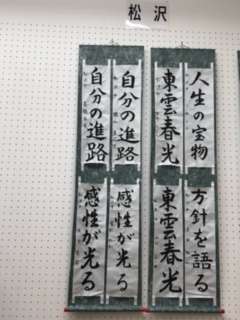 松沢
人生の宝物
東雲春光
自分の進路
自分の進路
方針を語る
東雲春光
感性が光る
感性が光る